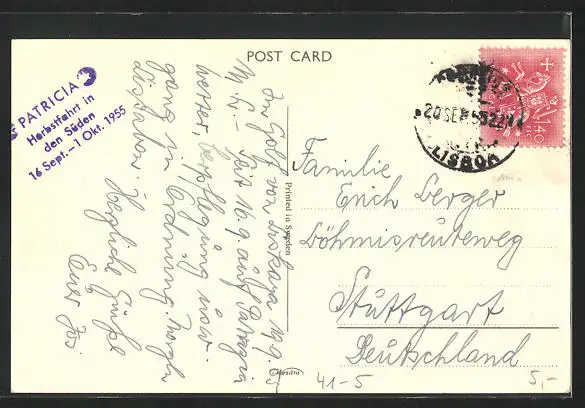 POST CARD
PATRICIA
Herbstfahrt in
den Süden
16 Sept. – 1 Okt. 1955
Im Golf von Biskaya 19.9.
M. L. – Seit 16.9. auf Patrizia
Wetter, Verpflegung usw.
ganz in Ordnung. Morgen
Lissabon. Herzliche Grüße
Euer Jos.
Printed in Sweden
20 SET 55 22H
LISBOA
1$40
Familie
Erich Berger
Böhmisreuteweg
Stuttgart
Deutschland
41-5
5,-